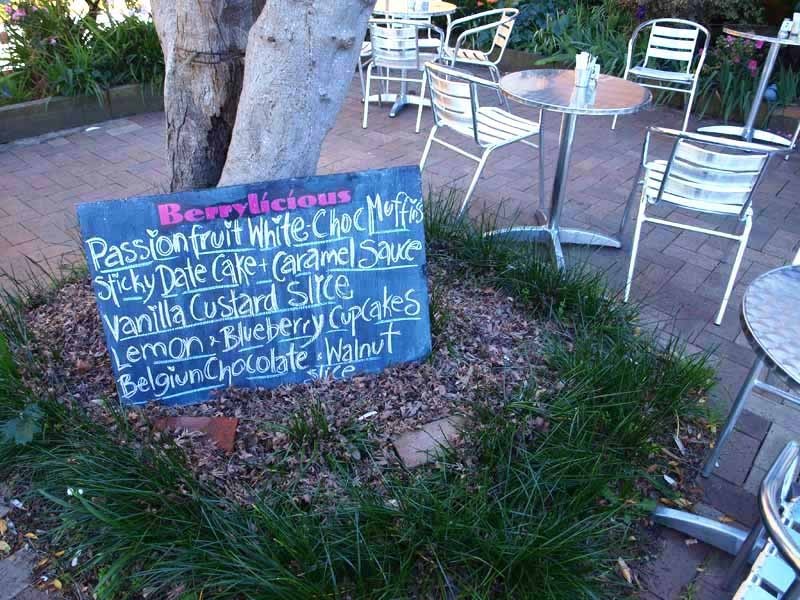 Berrylicious
Passionfruit White Choc Muffins
Sticky Date Cake + Caramel Sauce
Vanilla Custard Slice
Lemon + Blueberry Cupcakes
Belgiun Chocolate + Walnut
slice